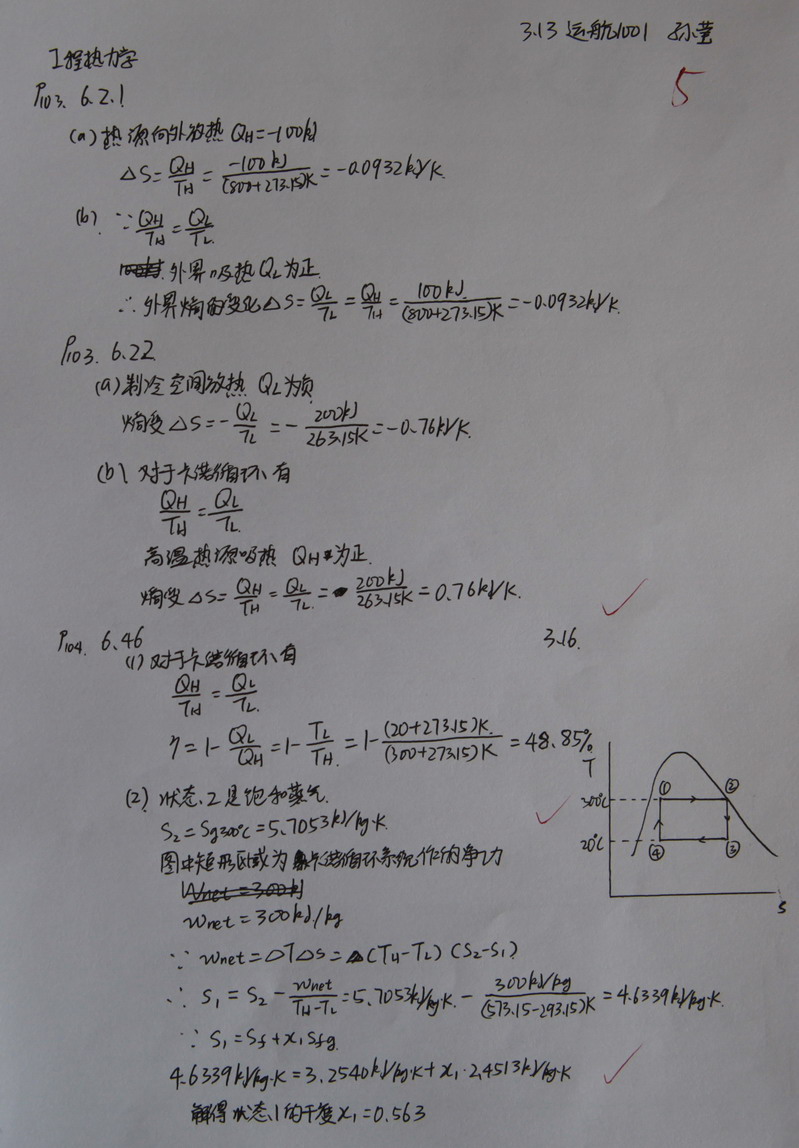 3.13 运航1001 孙莹
工程热力学
5
P103. 6.2.1
(a) 热源向外放热 QH=-100kJ
ΔS=QH/TH=-100kJ/(800+273.15)K=-0.0932kJ/K
(b) ∵QH/TH=QL/TL
外界吸热QL为正.
∴外界熵的变化ΔS=QL/TL=QH/TH=100kJ/(800+273.15)K=-0.0932kJ/K.
P103. 6.22
(a)制冷空间放热 QL为负
熵变ΔS=-QL/TL=-200kJ/263.15K=-0.76kJ/K.
(b) 对于卡诺循环有
QH/TH=QL/TL
高温热源吸热 QH为正.
熵变ΔS=QH/TH=QL/TL=200kJ/263.15K=0.76kJ/K.
P104. 6.46
3.16.
(1)对于卡诺循环有
QH/TH=QL/TL
η=1-QL/QH=1-TL/TH=1-(20+273.15)K/(300+273.15)K=48.85%
(2) 状态2是饱和蒸气.
S2=Sg300℃=5.7053kJ/kg·K.
图中矩形区域为卡诺循环系统作的净功
Wnet=300kJ
wnet=300kJ/kg
∵ wnet=ΔTΔS=(TH-TL)(S2-S1)
∴ S1=S2-wnet/(TH-TL)=5.7053kJ/kg·K-300kJ/kg/(573.15-293.15)K=4.6339kJ/kg·K.
∵ S1=Sf+x1Sfg.
4.6339kJ/kg·K=3.2540kJ/kg·K+x1·2.4513kJ/kg·K
解得状态1的干度x1=0.563
T
① ②
300℃
20℃
④ ③
S